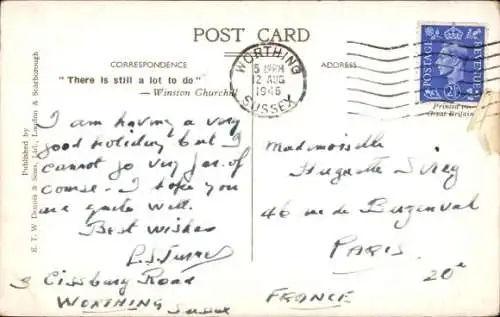 POST CARD
CORRESPONDENCE
ADDRESS
"There is still a lot to do"
— Winston Churchill
WORTHING
5 PM
12 AUG
1946
SUSSEX
POSTAGE
REVENUE
Printed in
Great Britain
Published by
E. T. W. Dennis & Sons, Ltd., London & Scarborough
I am having a very
good holiday but I
cannot go very far of
course. I hope you
are quite well.
Best wishes
3 Cissbury Road
WORTHING Sussex
Mademoiselle
Huguette
46 rue de Buzenval
PARIS
20e
FRANCE